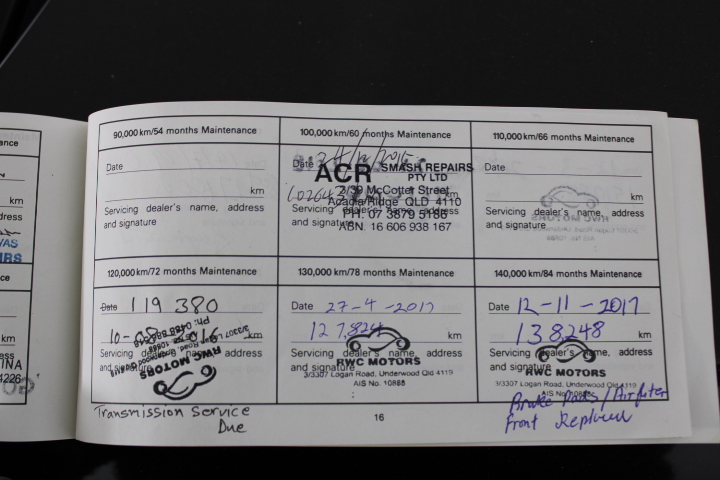 90,000 km/54 months Maintenance
Date
km
Servicing dealer's name, address
and signature
100,000 km/60 months Maintenance
Date
ACR SMASH REPAIRS
PTY LTD
3/39 McCotter Street
Acacia Ridge QLD 4110
PH. 07 3879 5186
ABN. 16 606 938 167
Servicing dealer's name, address
and signature
110,000 km/66 months Maintenance
Date
km
Servicing dealer's name, address
and signature
RWC MOTORS
120,000 km/72 months Maintenance
Date 119 380
km
Servicing dealer's name, address
and signature
RWC MOTORS
3/3307 Logan Road, Underwood Qld 4119
Transmission Service
Due
130,000 km/78 months Maintenance
Date 27-4-2017
127,824 km
Servicing dealer's name, address
and signature
RWC MOTORS
3/3307 Logan Road, Underwood Qld 4119
AIS No. 10888
140,000 km/84 months Maintenance
Date 12-11-2017
138,248 km
Servicing dealer's name, address
and signature
RWC MOTORS
3/3307 Logan Road, Underwood Qld 4119
AIS No. 10888
Brake Pads / Air filter
Front Replaced
16